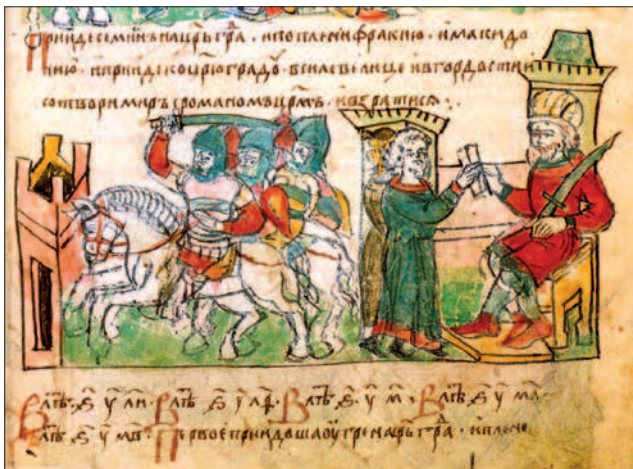 Прииде семиѡнъ на цр҃ьгра҃ · и поплени фракию · и макидо
нию · и прииде ко цр҃юградꙋ · в силе велице и в гордости
сотвори миръ с романомъ цр҃мъ · и възратисѧ :·
В лѣт҃ · ѕ҃ у҃ л҃и · В лѣт҃ ѕ҃ у҃ л҃ѳ · В лѣт҃ · ѕ҃ · у҃ м҃ · В лѣт҃ ѕ҃ у҃ м҃а ·
В лѣт҃ · ѕ҃ у҃ м҃в · Первое приидоша оугре на цр҃ьгра҃ · и плено